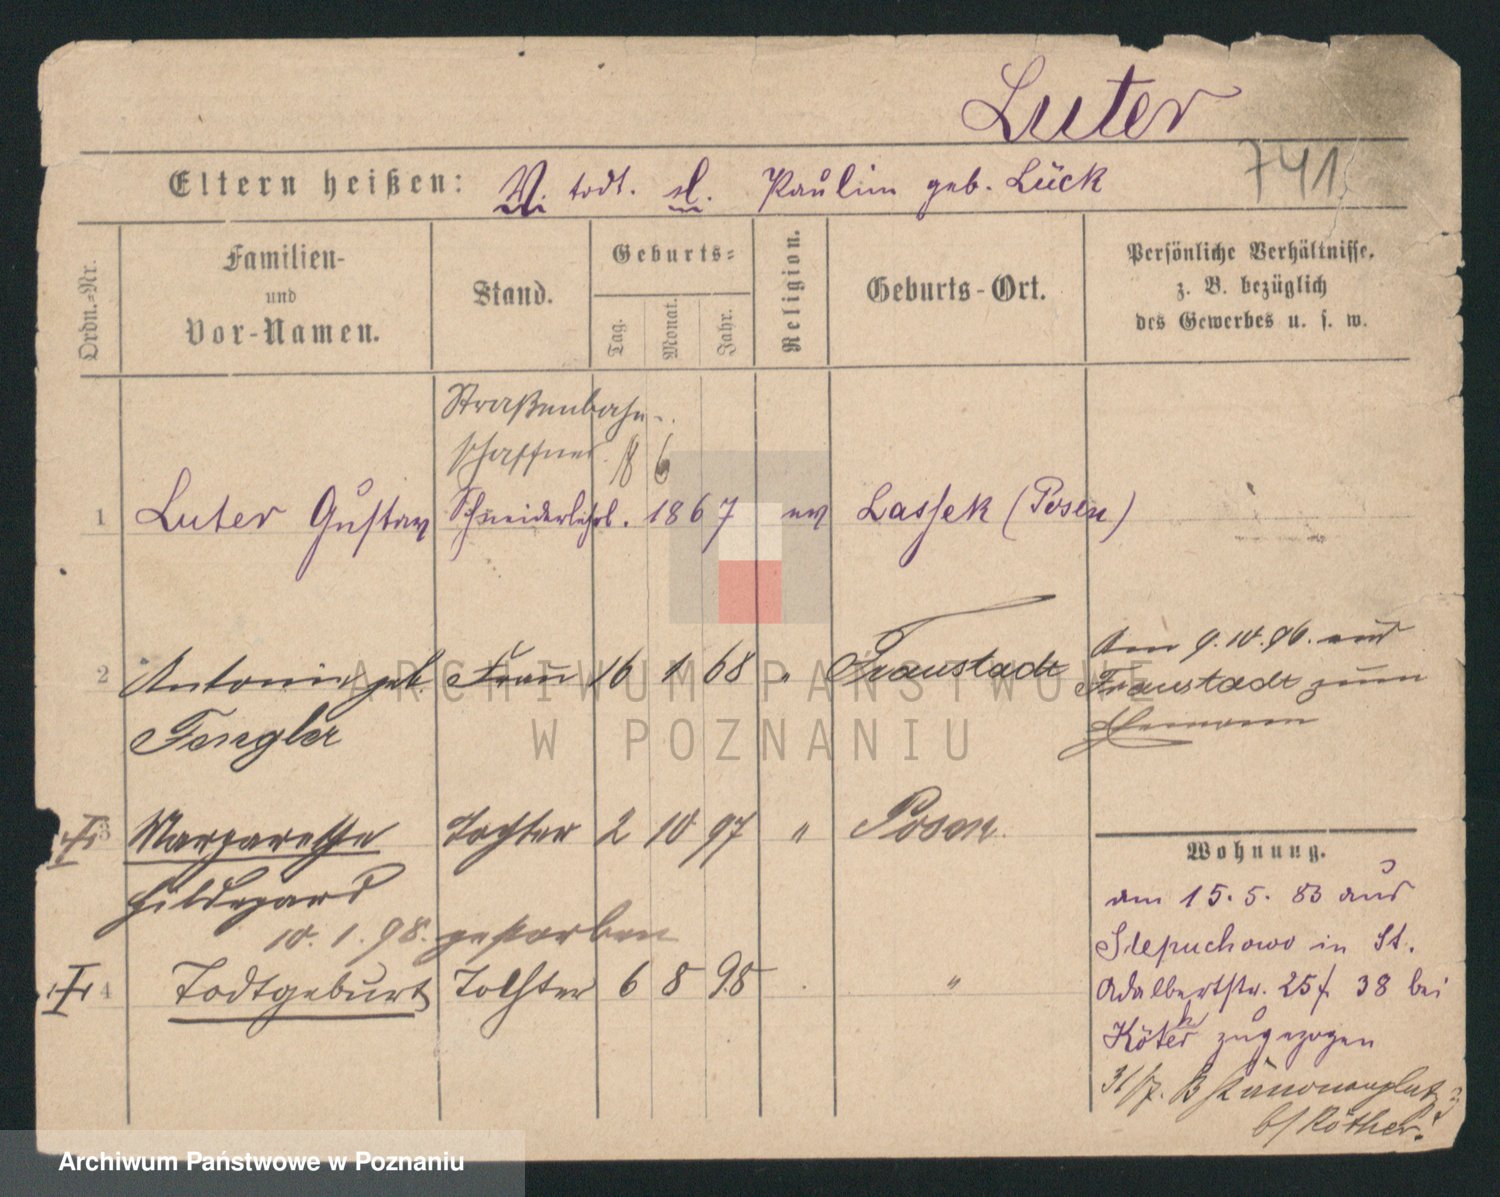 Luter
741
Eltern heißen: V. todt. M. Paulin geb. Lück
Ordn.-Nr.
Familien-
und
Vor-Namen.
Stand.
Geburts-
Tag.
Monat.
Jahr.
Religion.
Geburts-Ort.
Persönliche Verhältnisse,
z. B. bezüglich
des Gewerbes u. s. w.
Straßenbahn-
schaffner. 18 6
1 Luter Gustav Schneiderlehrl. 1867 ev Lassek (Posen)
2 Antonie geb. Frau 16 1 68 " Fraustadt
Fengler
Am 9.10.96. aus
Fraustadt zum
Ehemann
3 Margarethe Tochter 2 10 97 " Posen
Hildegard
10. 1. 98. gestorben
4 Todtgeburt Tochter 6 8 98 "
Wohnung.
am 15. 5. 83 aus
Slepuchowo in St.
Adalbertstr. 25/ 38 bei
Köter zugezogen
31/7. B Kanonenplatz 3
b/ Röther.
ARCHIWUM PAŃSTWOWE
W POZNANIU
Archiwum Państwowe w Poznaniu